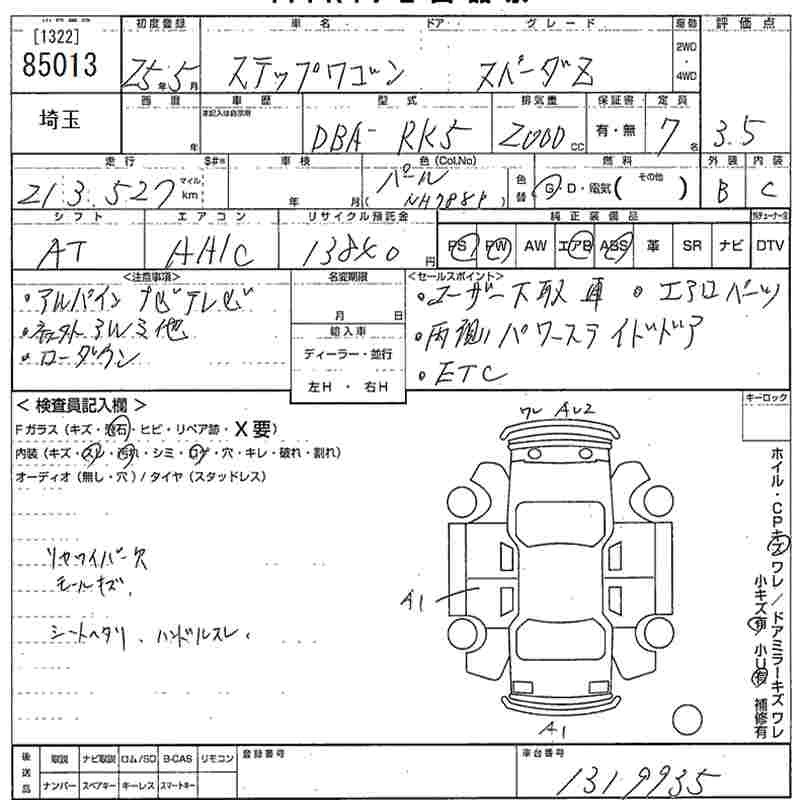 [1322]
85013
初度登録
25年5月
車名
ステップワゴン
ドア
グレード
スパーダZ
駆動
2WD
・
4WD
評価点
3.5
埼玉
西暦
年
車歴
本記入は自家用
型式
DBA- RK5
排気量
2000cc
保証書
有・無
定員
7名
走行
213,527
マイル
km
S#※
車検
年 月
色(Col.No)
パール
(NH788P)
色替
燃料
G・D・電気( その他 )
外装
B
内装
C
シフト
AT
エアコン
AAC
リサイクル預託金
13840円
純正装備品
PS PW AW エアB ABS 革 SR ナビ
DTV
<注意事項>
・アルパインナビテレビ
・社外アルミ他
・ローダウン
名変期限
月 日
輸入車
ディーラー・並行
左H・右H
<セールスポイント>
・ユーザー下取車 ・エアロパーツ
・両側パワースライドドア
・ETC
<検査員記入欄>
Fガラス(キズ・飛石・ヒビ・リペア跡・X要)
内装(キズ・スレ・汚れ・シミ・コゲ・穴・キレ・破れ・割れ)
オーディオ(無し・穴)/タイヤ(スタッドレス)
リヤワイパー欠
モールキズ,
シートヘタリ、ハンドルスレ、
ワレ A2
A1
A1
キーロック
ホイル・CPキズワレ/ドアミラーキズワレ
小キズ有 小U有 補修有
後送品
取説 ナビ取説 ロム/SD B-CAS リモコン
ナンバー スペアキー キーレス スマートキー
登録番号
車台番号
1319935